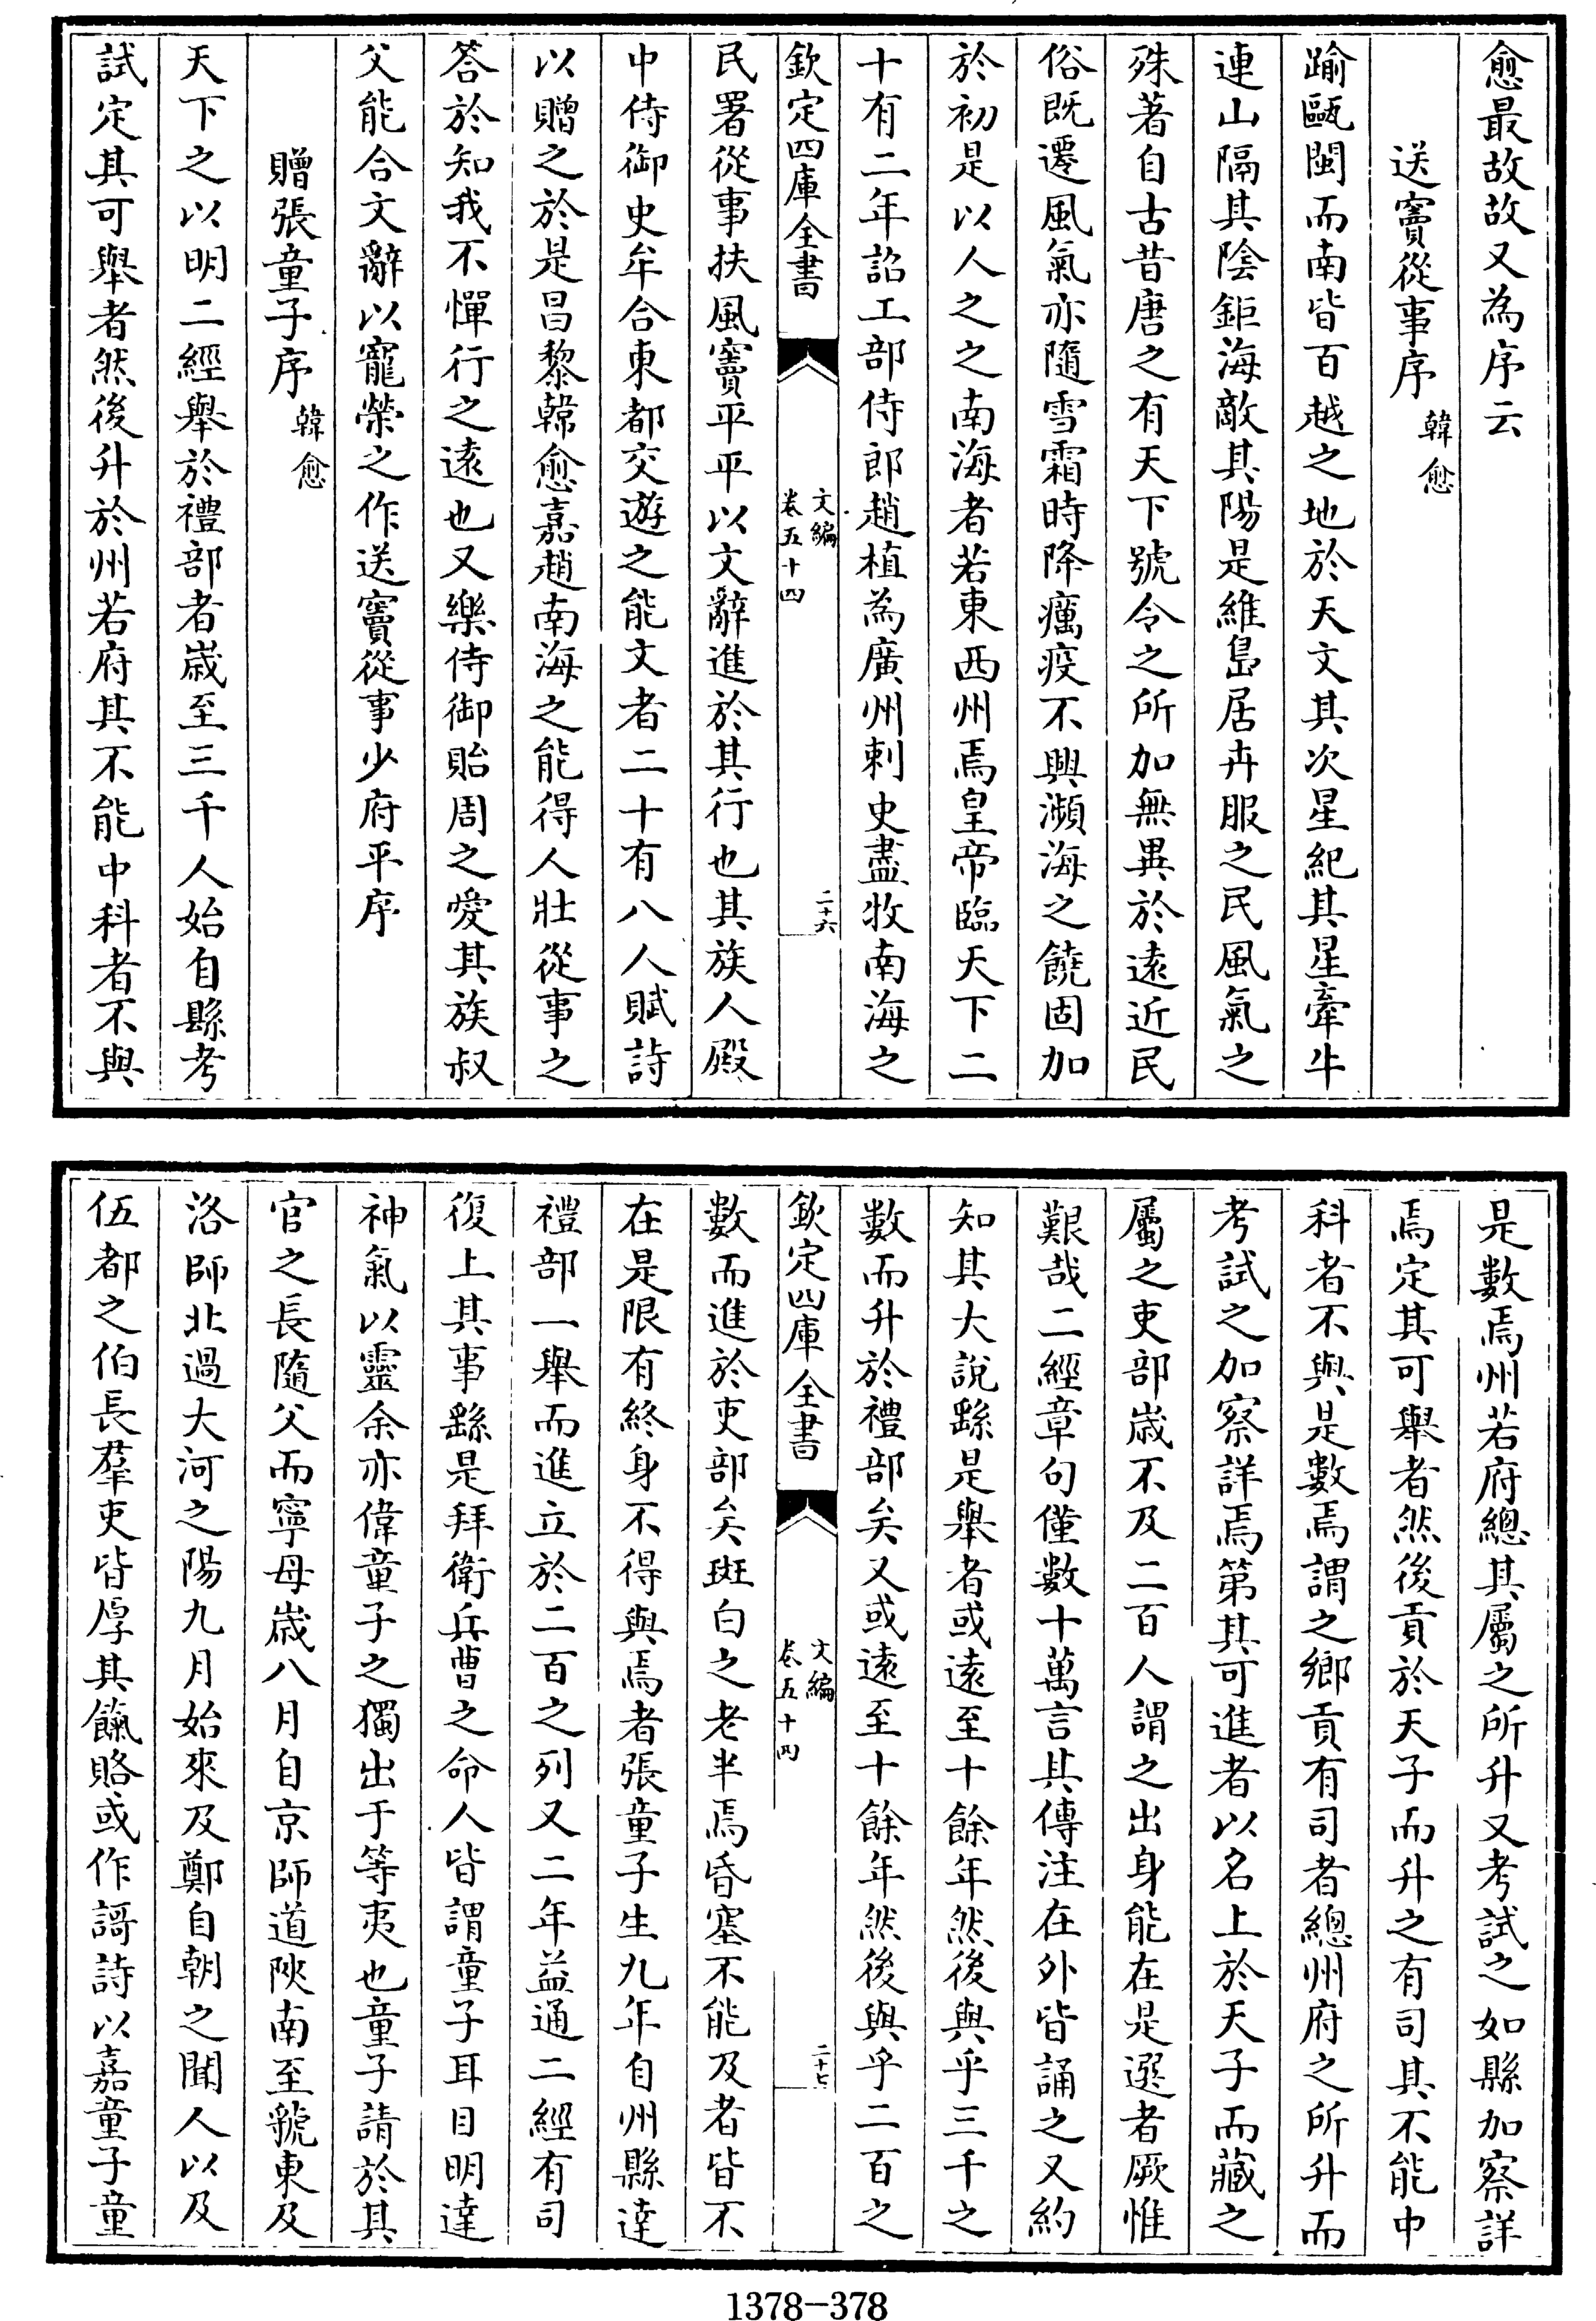 愈最故故又為序云
送竇從事序韓愈
踰甌閩而南皆百越之地於天文其次星紀其星牽牛
連山隔其陰鉅海敵其陽是維島居卉服之民風氣之
殊著自古昔唐之有天下號令之所加無異於遠近民
俗既遷風氣亦隨雪霜時降癘疫不興瀕海之饒固加
於初是以人之之南海者若東西州焉皇帝臨天下二
十有二年詔工部侍郎趙植為廣州刺史盡牧南海之
欽定四庫全書
文編
卷五十四
二十六
民署從事扶風竇平平以文辭進於其行也其族人殿
中侍御史牟合東都交遊之能文者二十有八人賦詩
以贈之於是昌黎韓愈嘉趙南海之能得人壯從事之
答於知我不憚行之遠也又樂侍御貽周之愛其族叔
父能合文辭以寵榮之作送竇從事少府平序
贈張童子序韓愈
天下之以明二經舉於禮部者歲至三千人始自縣考
試定其可舉者然後升於州若府其不能中科者不與
是數焉州若府總其屬之所升又考試之如縣加察詳
焉定其可舉者然後貢於天子而升之有司其不能中
科者不與是數焉謂之鄉貢有司者總州府之所升而
考試之加察詳焉第其可進者以名上於天子而藏之
屬之吏部歲不及二百人謂之出身能在是選者厥惟
艱哉二經章句僅數十萬言其傳注在外皆誦之又約
知其大說繇是舉者或遠至十餘年然後與乎三千之
數而升於禮部矣又或遠至十餘年然後與乎二百之
欽定四庫全書
文編
卷五十四
二十七
數而進於吏部矣斑白之老半焉昏塞不能及者皆不
在是限有終身不得與焉者張童子生九年自州縣達
禮部一舉而進立於二百之列又二年益通二經有司
復上其事繇是拜衛兵曹之命人皆謂童子耳目明達
神氣以靈余亦偉童子之獨出于等夷也童子請於其
官之長隨父而寧母歲八月自京師道陝南至虢東及
洛師北過大河之陽九月始來及鄭自朝之聞人以及
伍都之伯長羣吏皆厚其餼賂或作謌詩以嘉童子童
1378-378